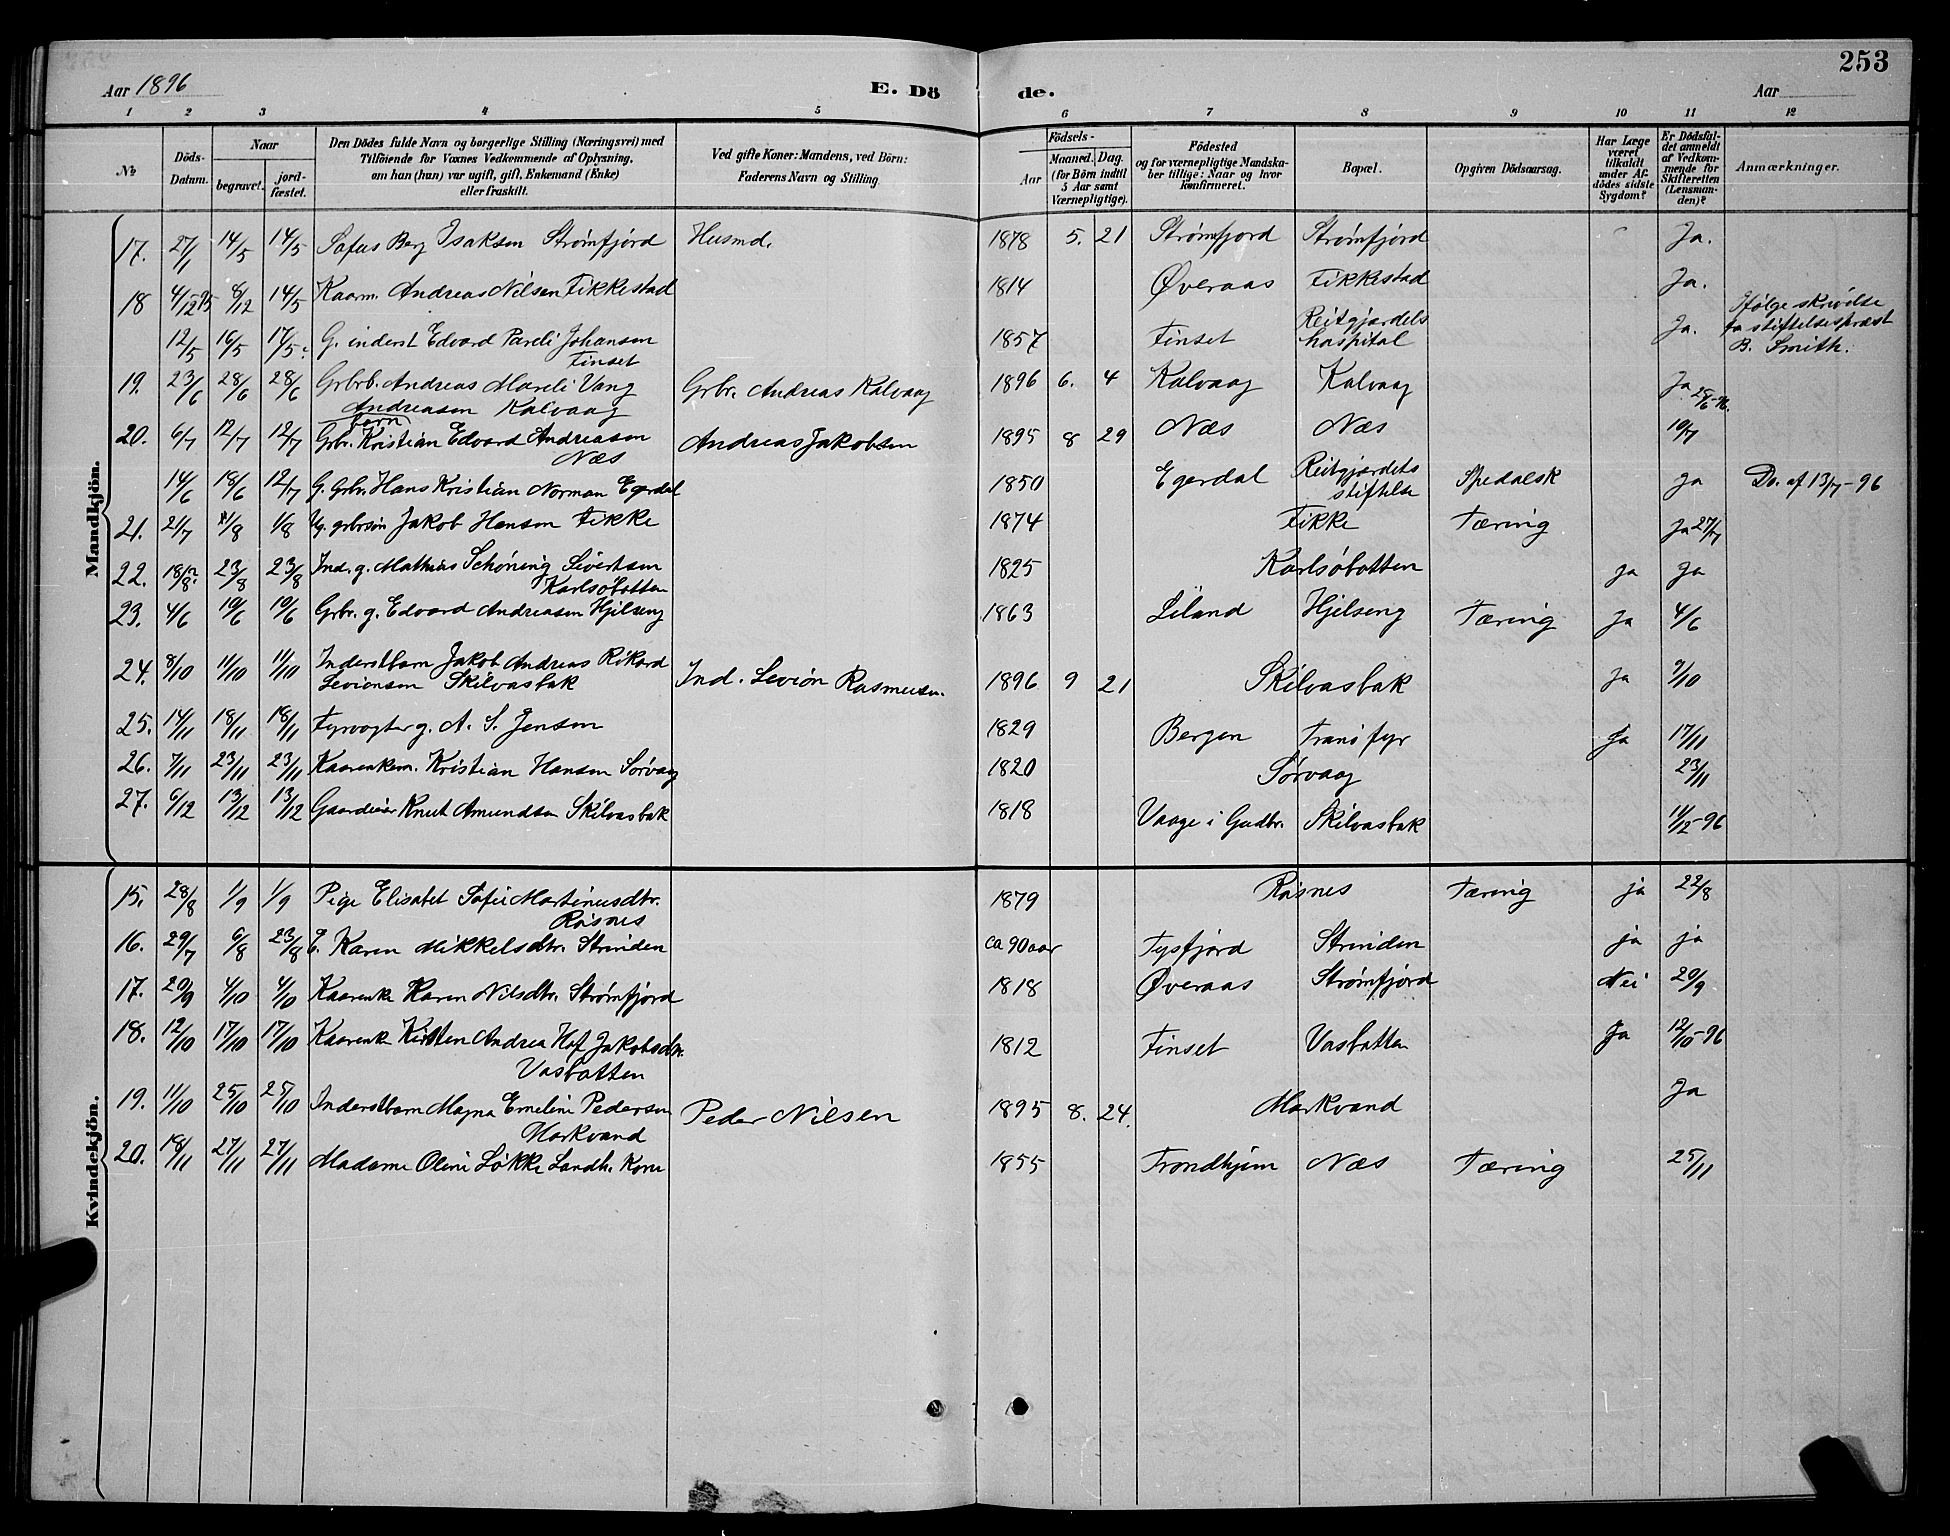 253
Aar 1896
E. Dö
de.
Aar
1 2 3 4 5 6 7 8 9 10 11 12
№
Döds-Datum.
Naar
begravet.
jord-fæstet.
Den Dödes fulde Navn og borgerlige Stilling (Næringsvei) med
Tilföiende for Voxnes Vedkommende af Oplysning,
om han (hun) var ugift, gift, Enkemand (Enke)
eller fraskilt.
Ved gifte Koner: Mandens, ved Börn:
Faderens Navn og Stilling.
Födsels-
Aar
Maaned. Dag.
(for Börn indtil
5 Aar samt
Værnepligtige).
Födested
og for værnepligtige Mandska-
ber tillige: Naar og hvor
konfirmeret.
Bopæl.
Opgiven Dödsaarsag.
Har Læge
været
tilkaldt
under Af-
dödes sidste
Sygdom?
Er Dödsfal-
det anmeldt
af Vedkom-
mende for
Skifteretten
(Lensman-
den)?
Anmærkninger.
Mandkjön.
17. 27/1 14/5 14/5 Sofus Berg Isaksen Strømfjord Husmd. 1878 5. 21 Strømfjord Strømfjord Ja.
18 4/12 95 8/12 14/5 Kaarm. Andreas Nilsen Fikkestad 1814 Øveraas Fikkestad Ja.
12/5 16/5 17/5 G. inderst Edvard Pareli Johansen 1857 Finset Reitgjærdets Ja. Ifølge skrivelse
Finset hospital fra stiftelsespræst
B. Smith.
19. 23/6 28/6 28/6 Grbrb. Andreas Mareli Vang Grbr. Andreas Kalvaag 1896 6. 4 Kalvaag Kalvaag Ja 28/6-96.
Andreasen Kalvaag
barn
20. 6/7 12/7 12/7 Grbr. Kristian Edvard Andreasen Andreas Jakobsen 1895 8 29 Næs Næs 10/7
Næs
14/6 18/6 12/7 G. Grbr. Hans Kristian Norman Egerdal 1850 Egerdal Reitgjærdets Spedalsk Ja Do. af 13/7-96
stiftelse
21. 21/7 1/8 1/8 Ug. grbrsøn Jakob Hansen Fikke 1874 Fikke Tæring Ja 27/7
22. 18/8 23/8 23/8 Ind. g. Mathias Schøning Sivertsen 1825 Karlsøbotten Ja Ja
Karlsøbotten
23. 4/6 10/6 10/6 Grbr. g. Edvard Andreasen Hjelseng 1863 Liland Hjelseng Tæring Ja 4/6
24. 8/10 11/10 11/10 Inderstbarn Jakob Andreas Rikard 1896 9 21 Skilvasbak Ja 9/10
Levionsen Skilvasbak Ind. Levion Rasmussen.
25. 14/11 18/11 18/11 Fyrvogter g. A. S. Jensen 1829 Bergen Tranø fyr Ja 17/11
26. 7/11 23/11 23/11 Kaarenkem. Kristian Hansen Sørvaag 1820 Sørvaag 23/11
27. 6/12 13/12 13/12 Gaardeier Knut Amundsen Skilvasbak 1818 Vaage i Gudbr. Skilvasbak 11/12-96
Kvindekjön.
15. 28/8 1/9 1/9 Pige Elisabet Sofie Martinusdtr. 1879 Røsnes Tæring ja 22/8
Røsnes
16. 29/7 6/8 23/8 E. Karen Mikkelsdtr. Strinden ca 90 aar Tysfjord Strinden ja ja
17. 20/9 4/10 4/10 Kaarenke Karen Nilsdtr. Strømfjord 1818 Øveraas Strømfjord Nei 20/9
18. 12/10 17/10 17/10 Kaarenk Kirsten Andrea Hof Jakobsdtr. 1812 Finset Vasbotten Ja 12/10-96
Vasbotten
19. 11/10 25/10 25/10 Inderstbarn Magna Emeline Pedersen Peder Nilsen 1895 8. 24. Markvand Ja
Markvand
20. 18/11 27/11 27/11 Madame Oline Løkke Landh. Kone 1855 Trondhjem Næs Tæring 25/11